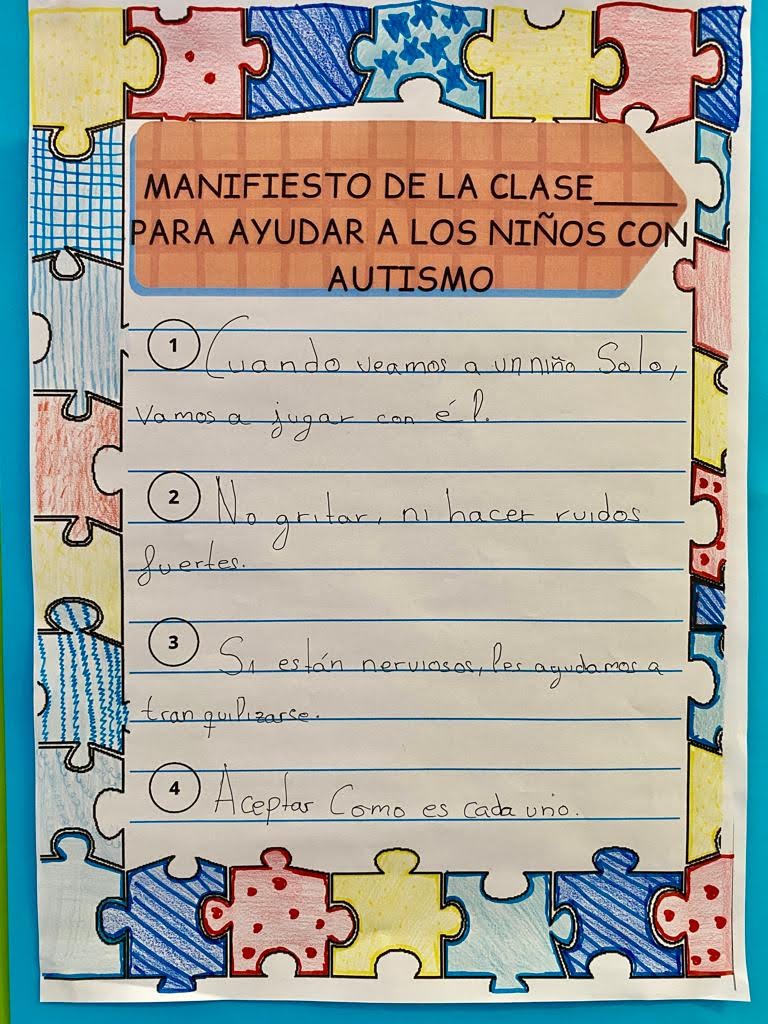 MANIFIESTO DE LA CLASE_____
PARA AYUDAR A LOS NIÑOS CON
AUTISMO
1 Cuando veamos a un niño Solo,
vamos a jugar con él.
2 No gritar, ni hacer ruidos
fuertes.
3 Si están nerviosos, les agudamos a
tranquilizarse.
4 Aceptar Como es cada uno.